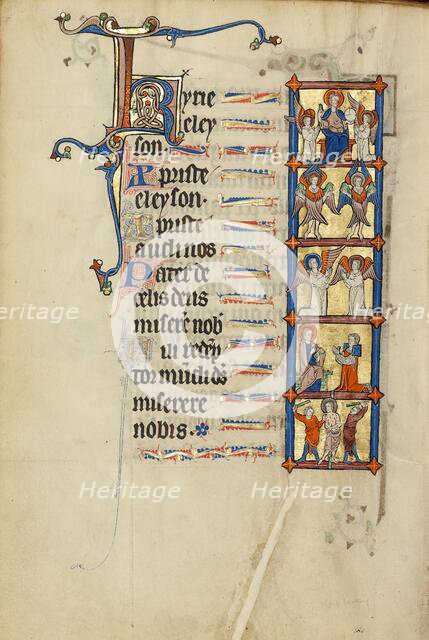 Kyrie
eley
son. Xpriste
eleyson.
Xpriste
audi nos
Pater de
celis deus
miserere nob
Fili redem
tor mundi ds
miserere
nobis.
Heritage
Heritage
Heritage
Heritage
Heritage
Heritage